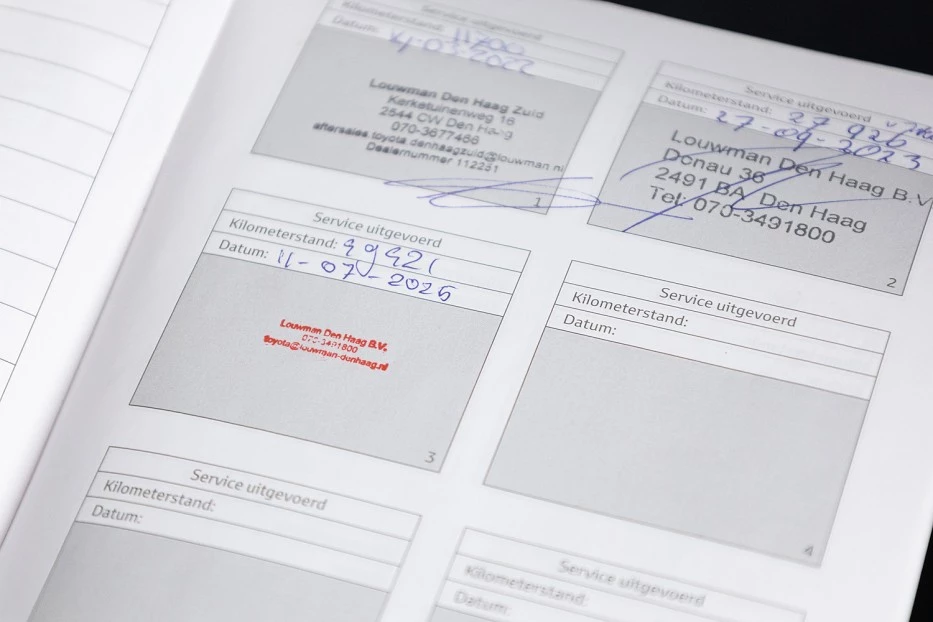 Service uitgevoerd
Kilometerstand: 11700
Datum: 14-03-2022
Louwman Den Haag Zuid
Kerketuinenweg 16
2544 CW Den Haag
070-3677466
aftersales.toyota.denhaagzuid@louwman.nl
Dealernummer 112251
1
Service uitgevoerd
Kilometerstand: 27926
Datum: 27-09-2023
Louwman Den Haag B.V.
Donau 36
2491 BA Den Haag
Tel: 070-3491800
2
Service uitgevoerd
Kilometerstand: 49421
Datum: 11-07-2025
Louwman Den Haag B.V.
070-3491800
toyota@louwman-denhaag.nl
3
Service uitgevoerd
Kilometerstand:
Datum:
4
Service uitgevoerd
Kilometerstand:
Datum:
Service uitgevoerd
Kilometerstand:
Datum: